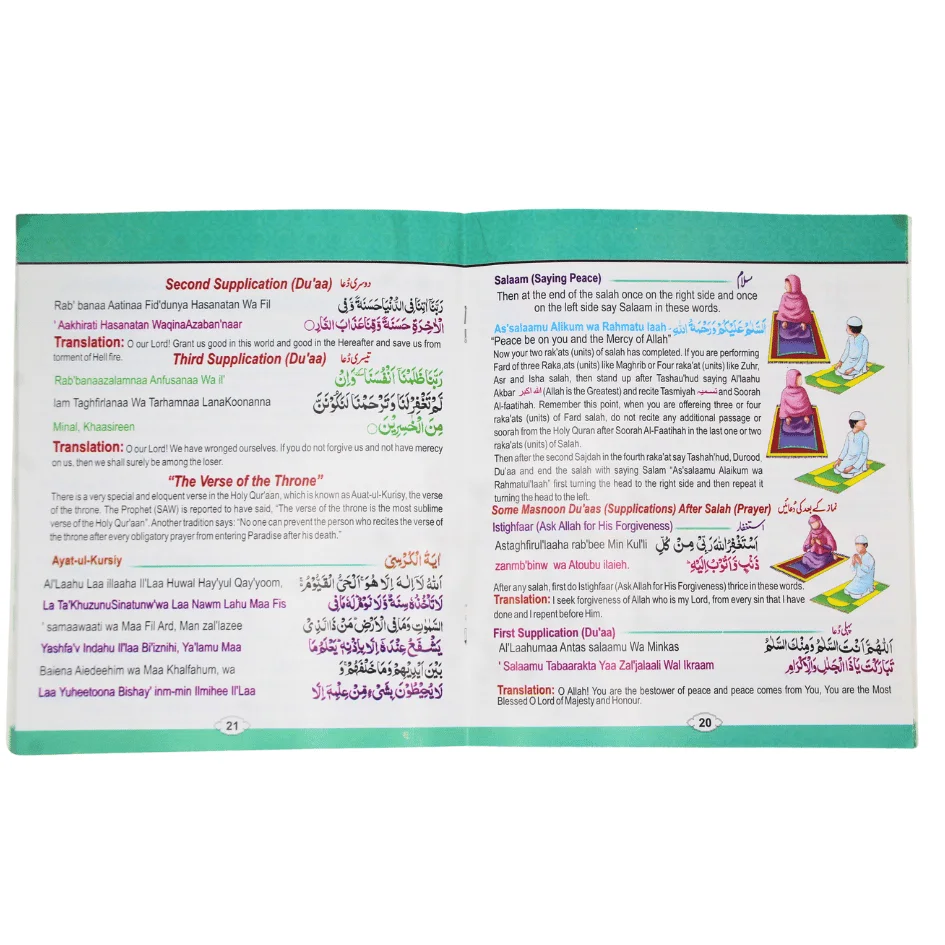 Salaam (Saying Peace) سلام
Then at the end of the salah once on the right side and once
on the left side say Salaam in these words.
As'salaamu Alikum wa Rahmatu laah - اَلسَّلَامُ عَلَيْكُمْ وَرَحْمَةُ اللهِ
“Peace be on you and the Mercy of Allah”
Now your two rak'ats (units) of salah has completed. If you are performing
Fard of three Raka,ats (units) like Maghrib or Four raka'at (units) like Zuhr,
Asr and Isha salah, then stand up after Tashau'hud saying Al'laahu
Akbar اللہ اکبر (Allah is the Greatest) and recite Tasmiyah تسمیہ and Soorah
Al-faatihah. Remember this point, when you are offereing three or four
raka'ats (units) of Fard salah, do not recite any additional passage or
soorah from the Holy Quran after Soorah Al-Faatihah in the last one or two
raka'ats (units) of Salah.
Then after the second Sajdah in the fourth raka'at say Tashah'hud, Durood
Du'aa and end the salah with saying Salam “As'salaamu Alaikum wa
Rahmatul'laah” first turning the head to the right side and then repeat it
turning the head to the left.
Some Masnoon Du'aas (Supplications) After Salah (Prayer) نماز کے بعد کی دُعائیں
Istighfaar (Ask Allah for His Forgiveness) استغفار
Astaghfirul'laaha rab'bee Min Kul'li اَسْتَغْفِرُ اللهَ رَبِّيْ مِنْ كُلِّ
zanmb'binw wa Atoubu ilaieh. ذَنْبٍ وَّاَتُوْبُ اِلَيْهِ
After any salah, first do Istighfaar (Ask Allah for His Forgiveness) thrice in these words.
Translation: I seek forgiveness of Allah who is my Lord, from every sin that I have
done and I repent before Him.
First Supplication (Du'aa) پہلی دُعا
Al'Laahumaa Antas salaamu Wa Minkas اَللّٰهُمَّ اَنْتَ السَّلَامُ وَمِنْكَ السَّلَامُ
' Salaamu Tabaarakta Yaa Zal'jalaali Wal Ikraam تَبَارَكْتَ يَاذَا الْجَلَالِ وَالْاِكْرَامِ
Translation: O Allah! You are the bestower of peace and peace comes from You, You are the Most
Blessed O Lord of Majesty and Honour.
20
Second Supplication (Du'aa) دوسری دُعا
Rab' banaa Aatinaa Fid'dunya Hasanatan Wa Fil رَبَّنَا اٰتِنَا فِى الدُّنْيَا حَسَنَةً وَّفِى
' Aakhirati Hasanatan WaqinaAzaban'naar الْاٰخِرَةِ حَسَنَةً وَّقِنَا عَذَابَ النَّارِ○
Translation: O our Lord! Grant us good in this world and good in the Hereafter and save us from
torment of Hell fire.
Third Supplication (Du'aa) تیسری دُعا
Rab'banaazalamnaa Anfusanaa Wa il' رَبَّنَا ظَلَمْنَا اَنْفُسَنَا وَاِنْ
lam Taghfirlanaa Wa Tarhamnaa LanaKoonanna لَّمْ تَغْفِرْ لَنَا وَتَرْحَمْنَا لَنَكُوْنَنَّ
Minal, Khaasireen مِنَ الْخٰسِرِيْنَ○
Translation: O our Lord! We have wronged ourselves. If you do not forgive us and not have mercy
on us, then we shall surely be among the loser.
“The Verse of the Throne”
There is a very special and eloquent verse in the Holy Qur'aan, which is known as Auat-ul-Kurisy, the verse
of the throne. The Prophet (SAW) is reported to have said, “The verse of the throne is the most sublime
verse of the Holy Qur'aan”. Another tradition says: “No one can prevent the person who recites the verse of
the throne after every obligatory prayer from entering Paradise after his death.”
Ayat-ul-Kursiy اٰيَةُ الْكُرْسِى
Al'Laahu Laa illaaha Il'Laa Huwal Hay'yul Qay'yoom, اَللهُ لَآ اِلٰهَ اِلَّا هُوَ ۚ اَلْحَىُّ الْقَيُّوْمُ
La Ta'KhuzunuSinatunw'wa Laa Nawm Lahu Maa Fis لَا تَأْخُذُهٗ سِنَةٌ وَّلَا نَوْمٌ لَهٗ مَا فِى
' samaawaati wa Maa Fil Ard, Man zal'lazee السَّمٰوٰتِ وَمَا فِى الْاَرْضِ مَنْ ذَا الَّذِىْ
Yashfa'v Indahu Il'laa Bi'iznihi, Ya'lamu Maa يَشْفَعُ عِنْدَهٗٓ اِلَّا بِاِذْنِهٖ يَعْلَمُ مَا
Baiena Aiedeehim wa Maa Khalfahum, wa بَيْنَ اَيْدِيْهِمْ وَمَا خَلْفَهُمْ وَ
Laa Yuheetoona Bishay' inm-min Ilmihee Il'Laa لَا يُحِيْطُوْنَ بِشَىْءٍ مِّنْ عِلْمِهٖٓ اِلَّا
21